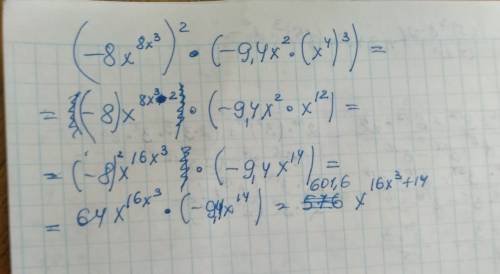 (-8x^{8x^3})^2 · (-9,4x^2 · (x^4)^3) =
= ((-8)x^{8x^3·2}) · (-9,4x^2 · x^{12}) =
= (-8)^2 x^{16x^3} · (-9,4x^{14}) =
= 64x^{16x^3} · (-9,4x^{14}) = 601,6 x^{16x^3+14}